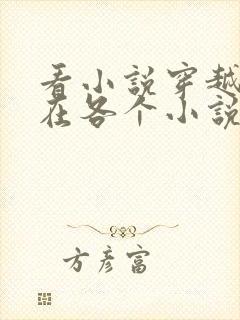 看小说穿越
在各个小说
方彦富